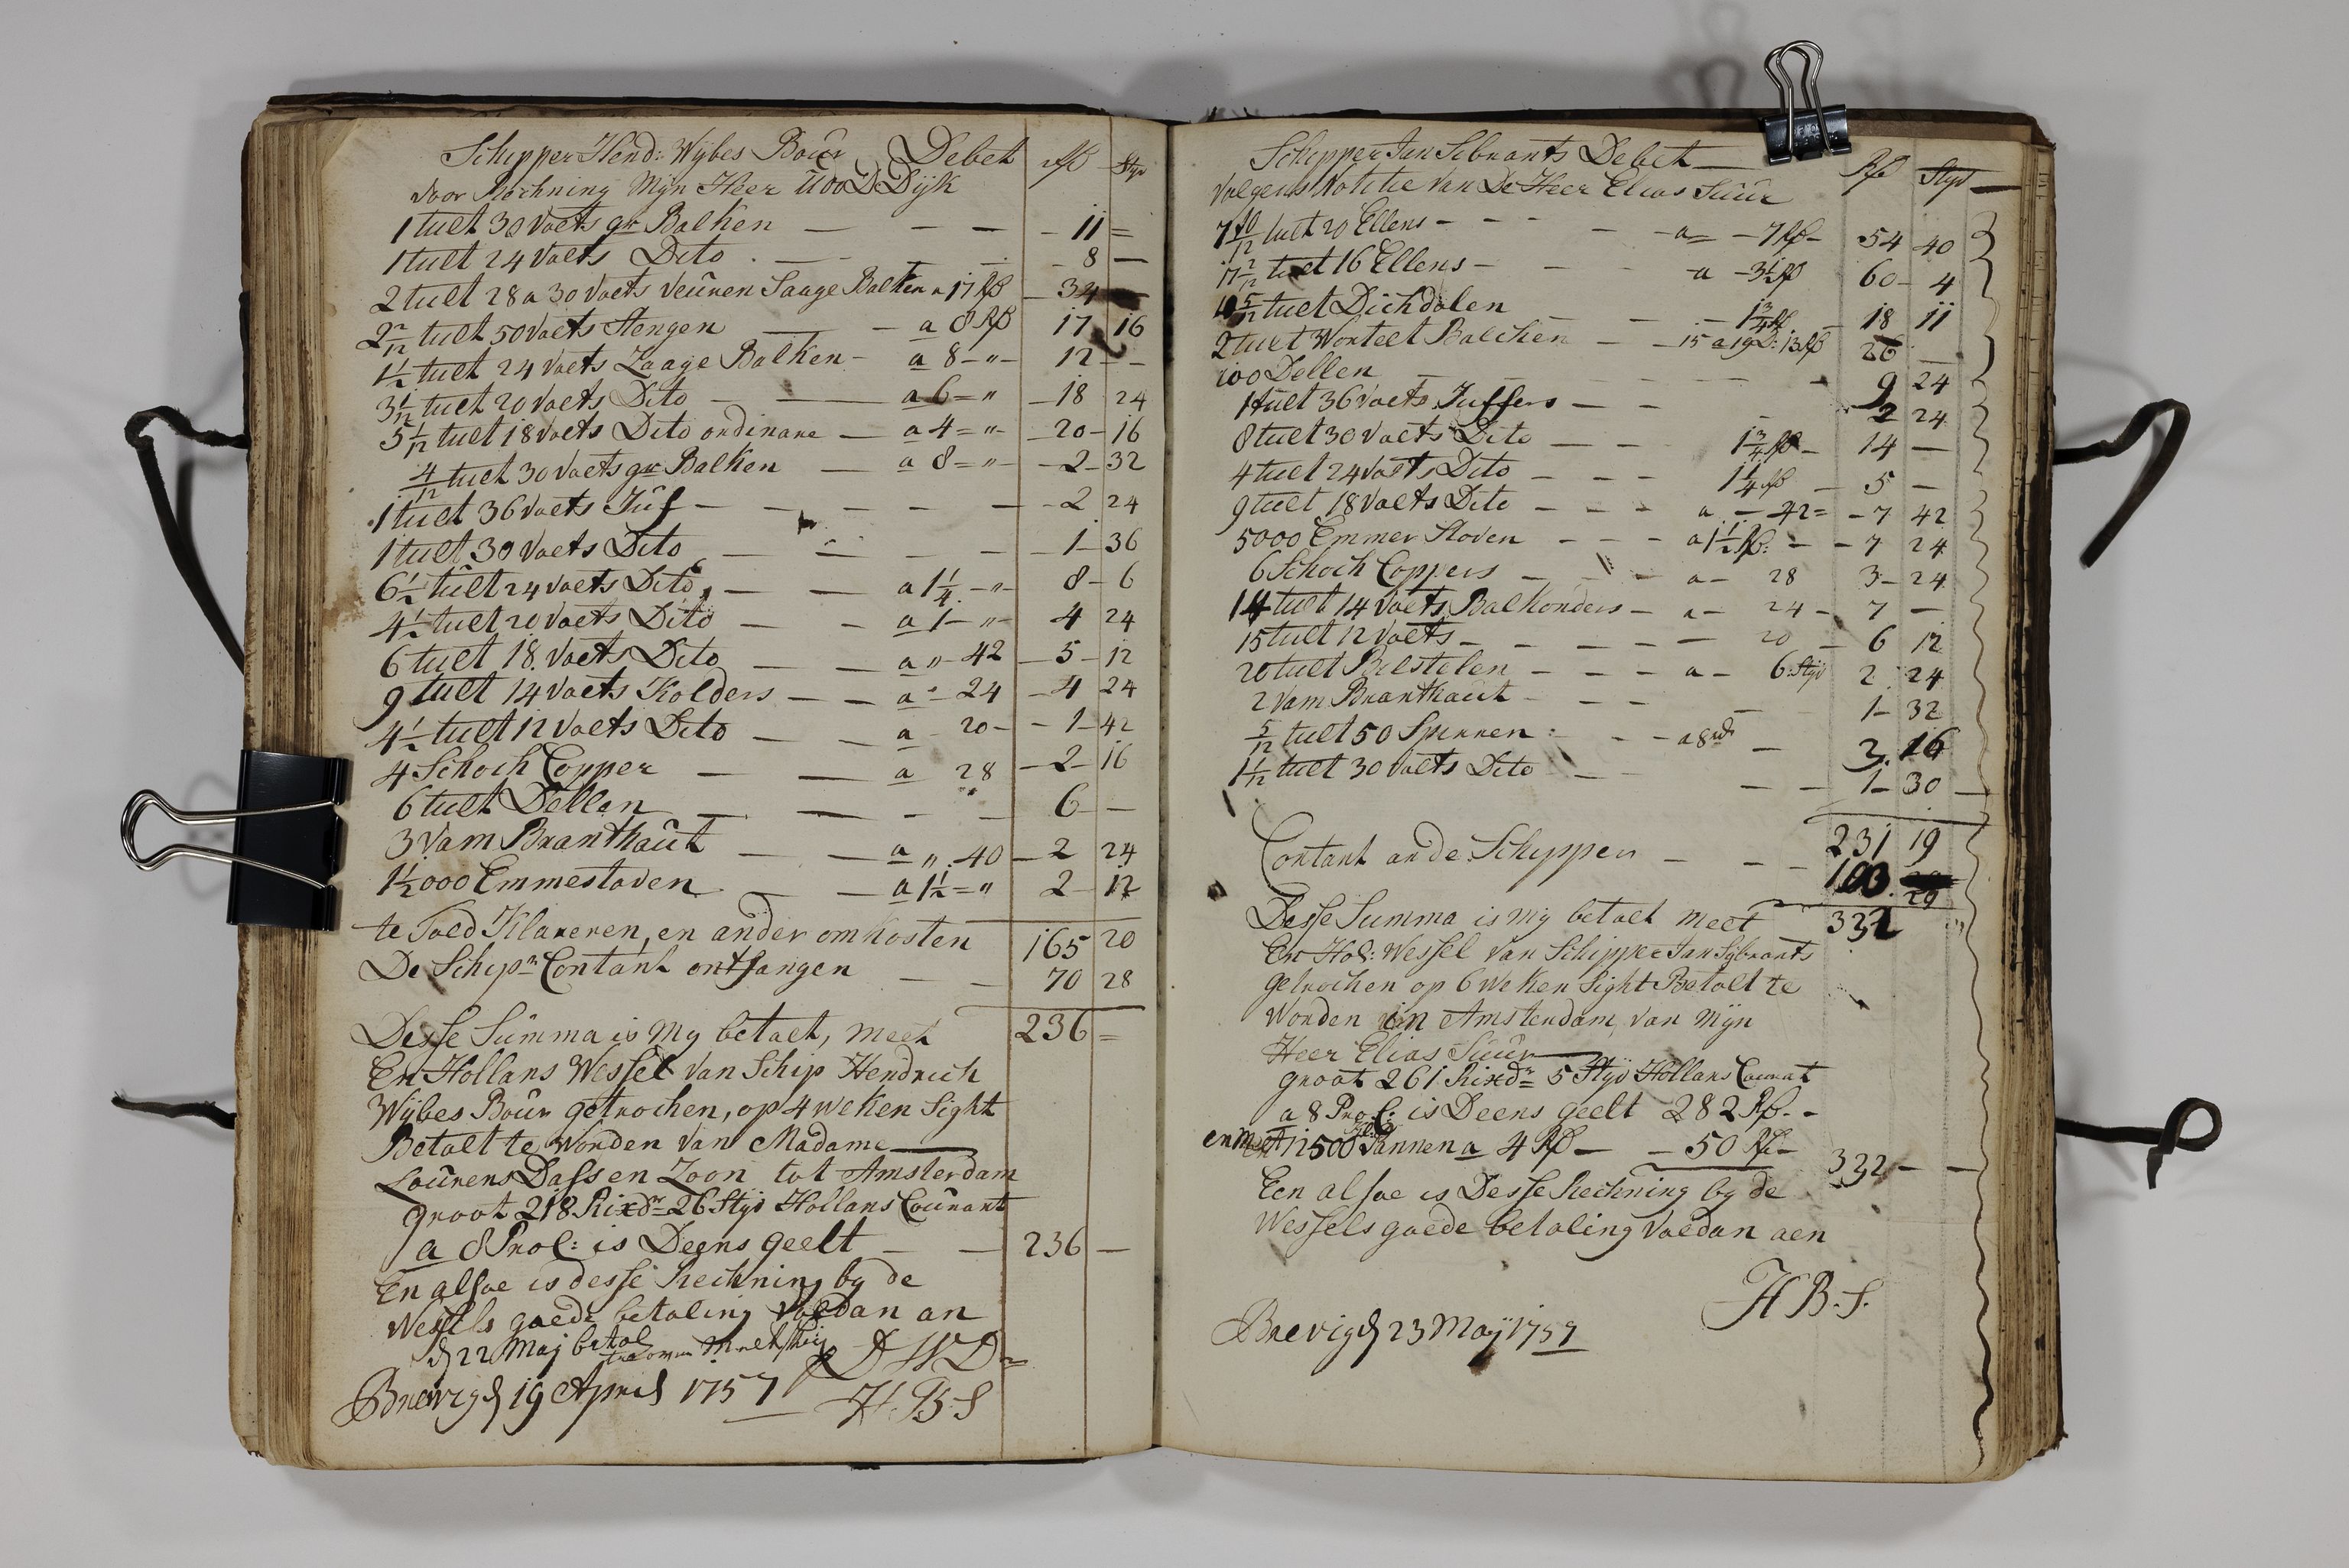 Schipper Hend: Wijbes Boûr Debet Rß Styv
voor Rechning Mijn Heer UdoD Dijk
1 tult 30 Voets gr Balken — — — 11 =
1 tult 24 Voets Dito — — 8 —
2 tult 28 a 30 Voets Veûren Saage Balken a 17 Rß — 34 —
2 2/12 tult 50 Voets Stengen — a 8 Rß 17 16
1 1/2 tult 24 Voets Zaage Balken — a 8 — " — 12 — —
3 1/12 tult 20 Voets Dito — a 6 = " — 18 24
5 1/12 tult 18 Voets Dito ordinare — a 4 = " — 20 — 16
4/12 tult 30 Voets gr Balken — a 8 = " — 2 — 32
1 tult 36 Voets Jûf — — — — — 2 24
1 tult 30 Voets Dito — — — — 1 — 36
6 1/2 tûlt 24 Voets Dito — — a 1 1/4 — " — 8 — 6
4 1/2 tult 20 Voets Dito — — a 1 — " — 4 24
6 tult 18 Voets Dito — — a " 42 — 5 — 12
9 tult 14 Voets Kolders — — a — 24 — 4 24
4 1/2 tult 12 Voets Dito — — a 20 — — 1 — 42
4 Schoch Copper — — a 28 — 2 — 16
6 tult Dellen — — — — 6 —
3 Vam Branthaût — — a " 40 — 2 24
1 1/2 000 Emmestaven — a 1 1/2 = " 2 — 12
te Toed Klareren, en ander omkosten 165 20
De Schipr Contant ontfangen — — 70 28
Desse Sûmma is my betaelt, meet 236 =
En Hollans Wessel Van Schip Hendrich
Wijbes Boûr getrochen, op 4 weken Sight
Betalt te Worden Van Madame —
Loûrens Dass en Zoon tot Amsterdam
groot 218 Rixdr 26 Styv Hollans Coûrant
a 8 ProC: is Deens geelt — — 236 —
En alsoe is desse Rechning by de
Wessels goede betaling Voldan an
d 22 Maj betal
DWD
Brevig d 19 April 1757
H B S
Schipper Jan Sibrants Debet — Rß Styv —
Volgens Notitie Van De Heer Elias Suûr
7 10/12 tult 20 Ellens — — — — a — 7 Rß — 54 40
17 2/12 tult 16 Ellens — — — a — 3 1/2 Rß 60 — 4
10 5/12 tuet Dichdalen — — — 1 3/4 Rß — 18 11
2 tult Worteel Balcken — — 15 a 19 D: 13 Rß 26 —
100 Dellen — — — — 9 24
1 tult 36 Voets Juffers — — — 2 24
8 tult 30 Voets Dito — — 1 3/4 Rß — 14 —
4 tult 24 Voets Dito — — — 1 1/4 Rß — 5 —
9 tult 18 Voets Dito — — — a — 42 = — 7 42
5000 Emmer Staven — — — a 1 1/2 Rß: — — 7 24
6 Schoch Coppers — — — a — 28 3 — 24
14 tult 14 Voets Balkonders — a — 24 — 7 —
15 tult 12 Voets — — — — — 20 — 6 12
20 tult Bilstelen — — — a — 6 Styv 2 24
2 Vam Branthaut — — — — 1 — 32
5/12 tult 50 Spirren — — a 8 rd — 3. 16
1 1/12 tult 30 Voets Dito — — — 1 — 30 —
231 19
Contant an de Schipper — — — 100. 29
Desse Summa is my betaelt meet 332
En Hol: Wessel Van Schipper Jan Sybrants
getrochen op 6 Weken Sight Betalt te
Worden in Amsterdam, van Mijn
Heer Elias Suûr —
groot 261 Rixdr 5 Styv Hollans Courant
a 8 ProC: is Deens geelt 282 Rß. -
en met 12500 Pannen a 4 Rß — — 50 Rß — 332 — —
Een alsoe is Desse Rechning by de
Wessels goede betaling Voldan aen
H B. S.
Brevig d 23 Maij 1757